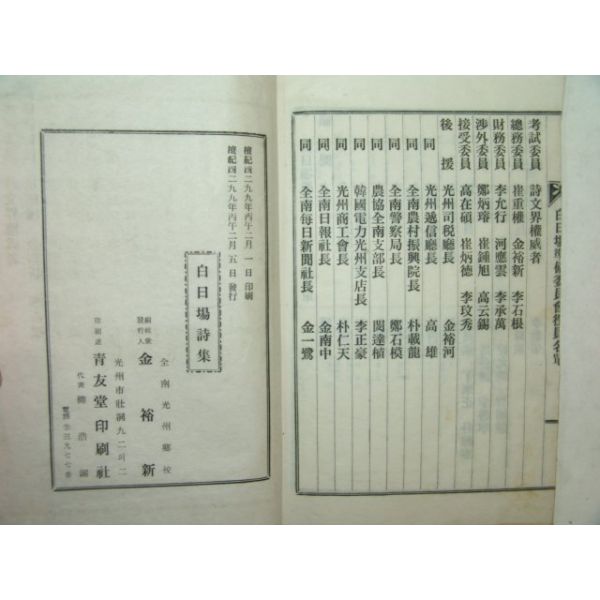 白日場準備委員會役員名單
考試委員 詩文界權威者
總務委員 崔重權 金裕新 李石根
財務委員 李允行 河應雲 李承萬
涉外委員 鄭炳瑢 崔鍾旭 高云錫
接受委員 高在碩 崔炳德 李玟秀
後援 光州司税廳長 金裕河
同 光州遞信廳長 高雄
同 全南農村振興院長 朴載龍
同 全南警察局長 鄭石模
同 農協全南支部長 閔達植
同 韓國電力光州支店長 李正豪
同 光州商工會長 朴仁天
同 全南日報社長 金南中
同 全南每日新聞社長 金一鷺
檀紀四二九九年丙午二月一日印刷
檀紀四二九九年丙午二月五日發行
白日場詩集
全南光州鄕校
編輯兼發行人 金裕新
光州市壯洞九二의二
印刷處 青友堂印刷社
代表